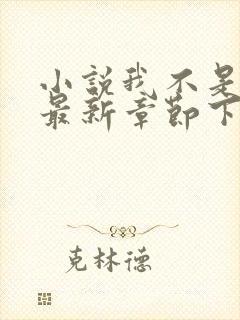 小説我不是
最新章節下
克林德